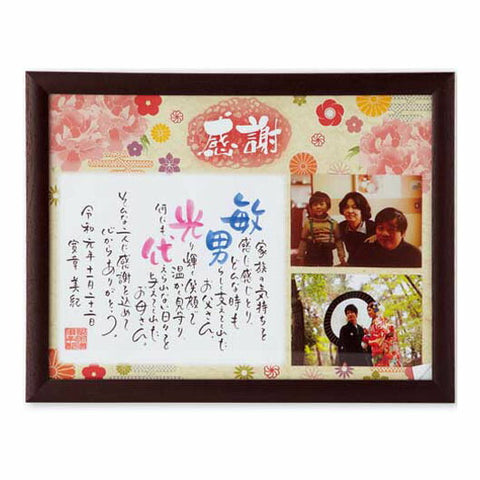 感謝
家族の気持ちを
敏感に感じとり
どんな時も
男らしく支えてくれた
お父さん。
光り輝く笑顔で
温かく見守り、
何にも
代えられない日々を
与えてくれた
お母さん。
そんな二人に感謝を込めて
心からありがとう。
令和元年十一月二十二日
寛幸 美紀